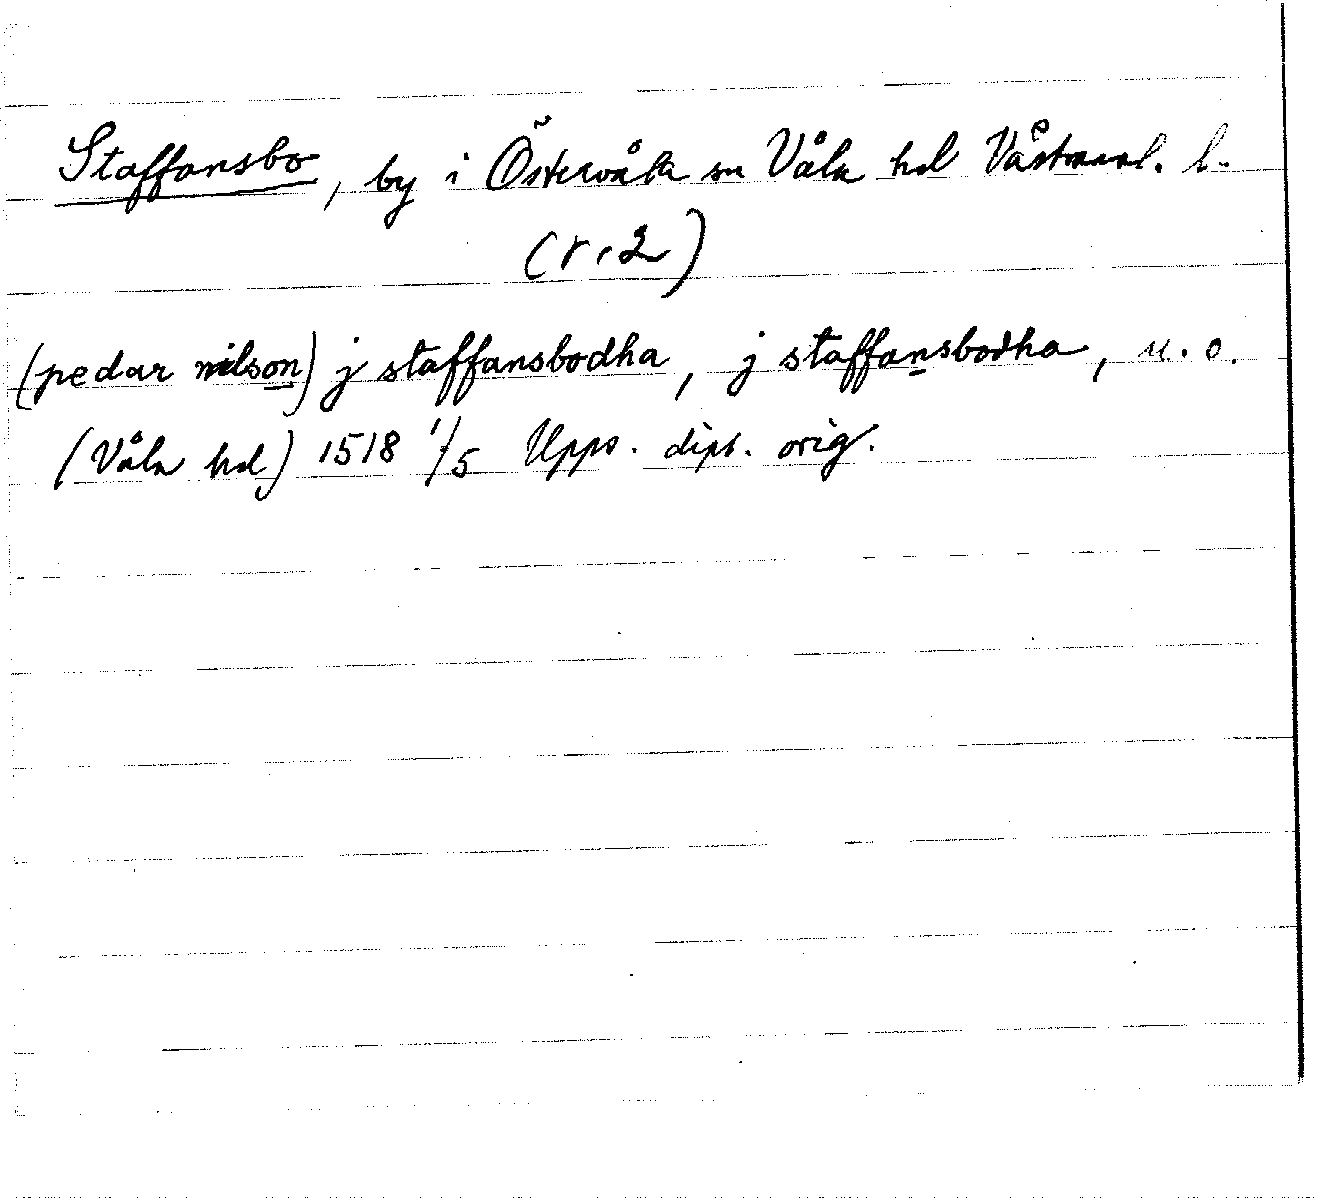 Staffansbo, by i Östervåla sn Våla hd Västmanl. l.
(r. 2)
(pedar nilson) j staffansbodha, j staffansbodha, u. o.
(Våla hd) 1518 1/5 Upps. dipl. orig.